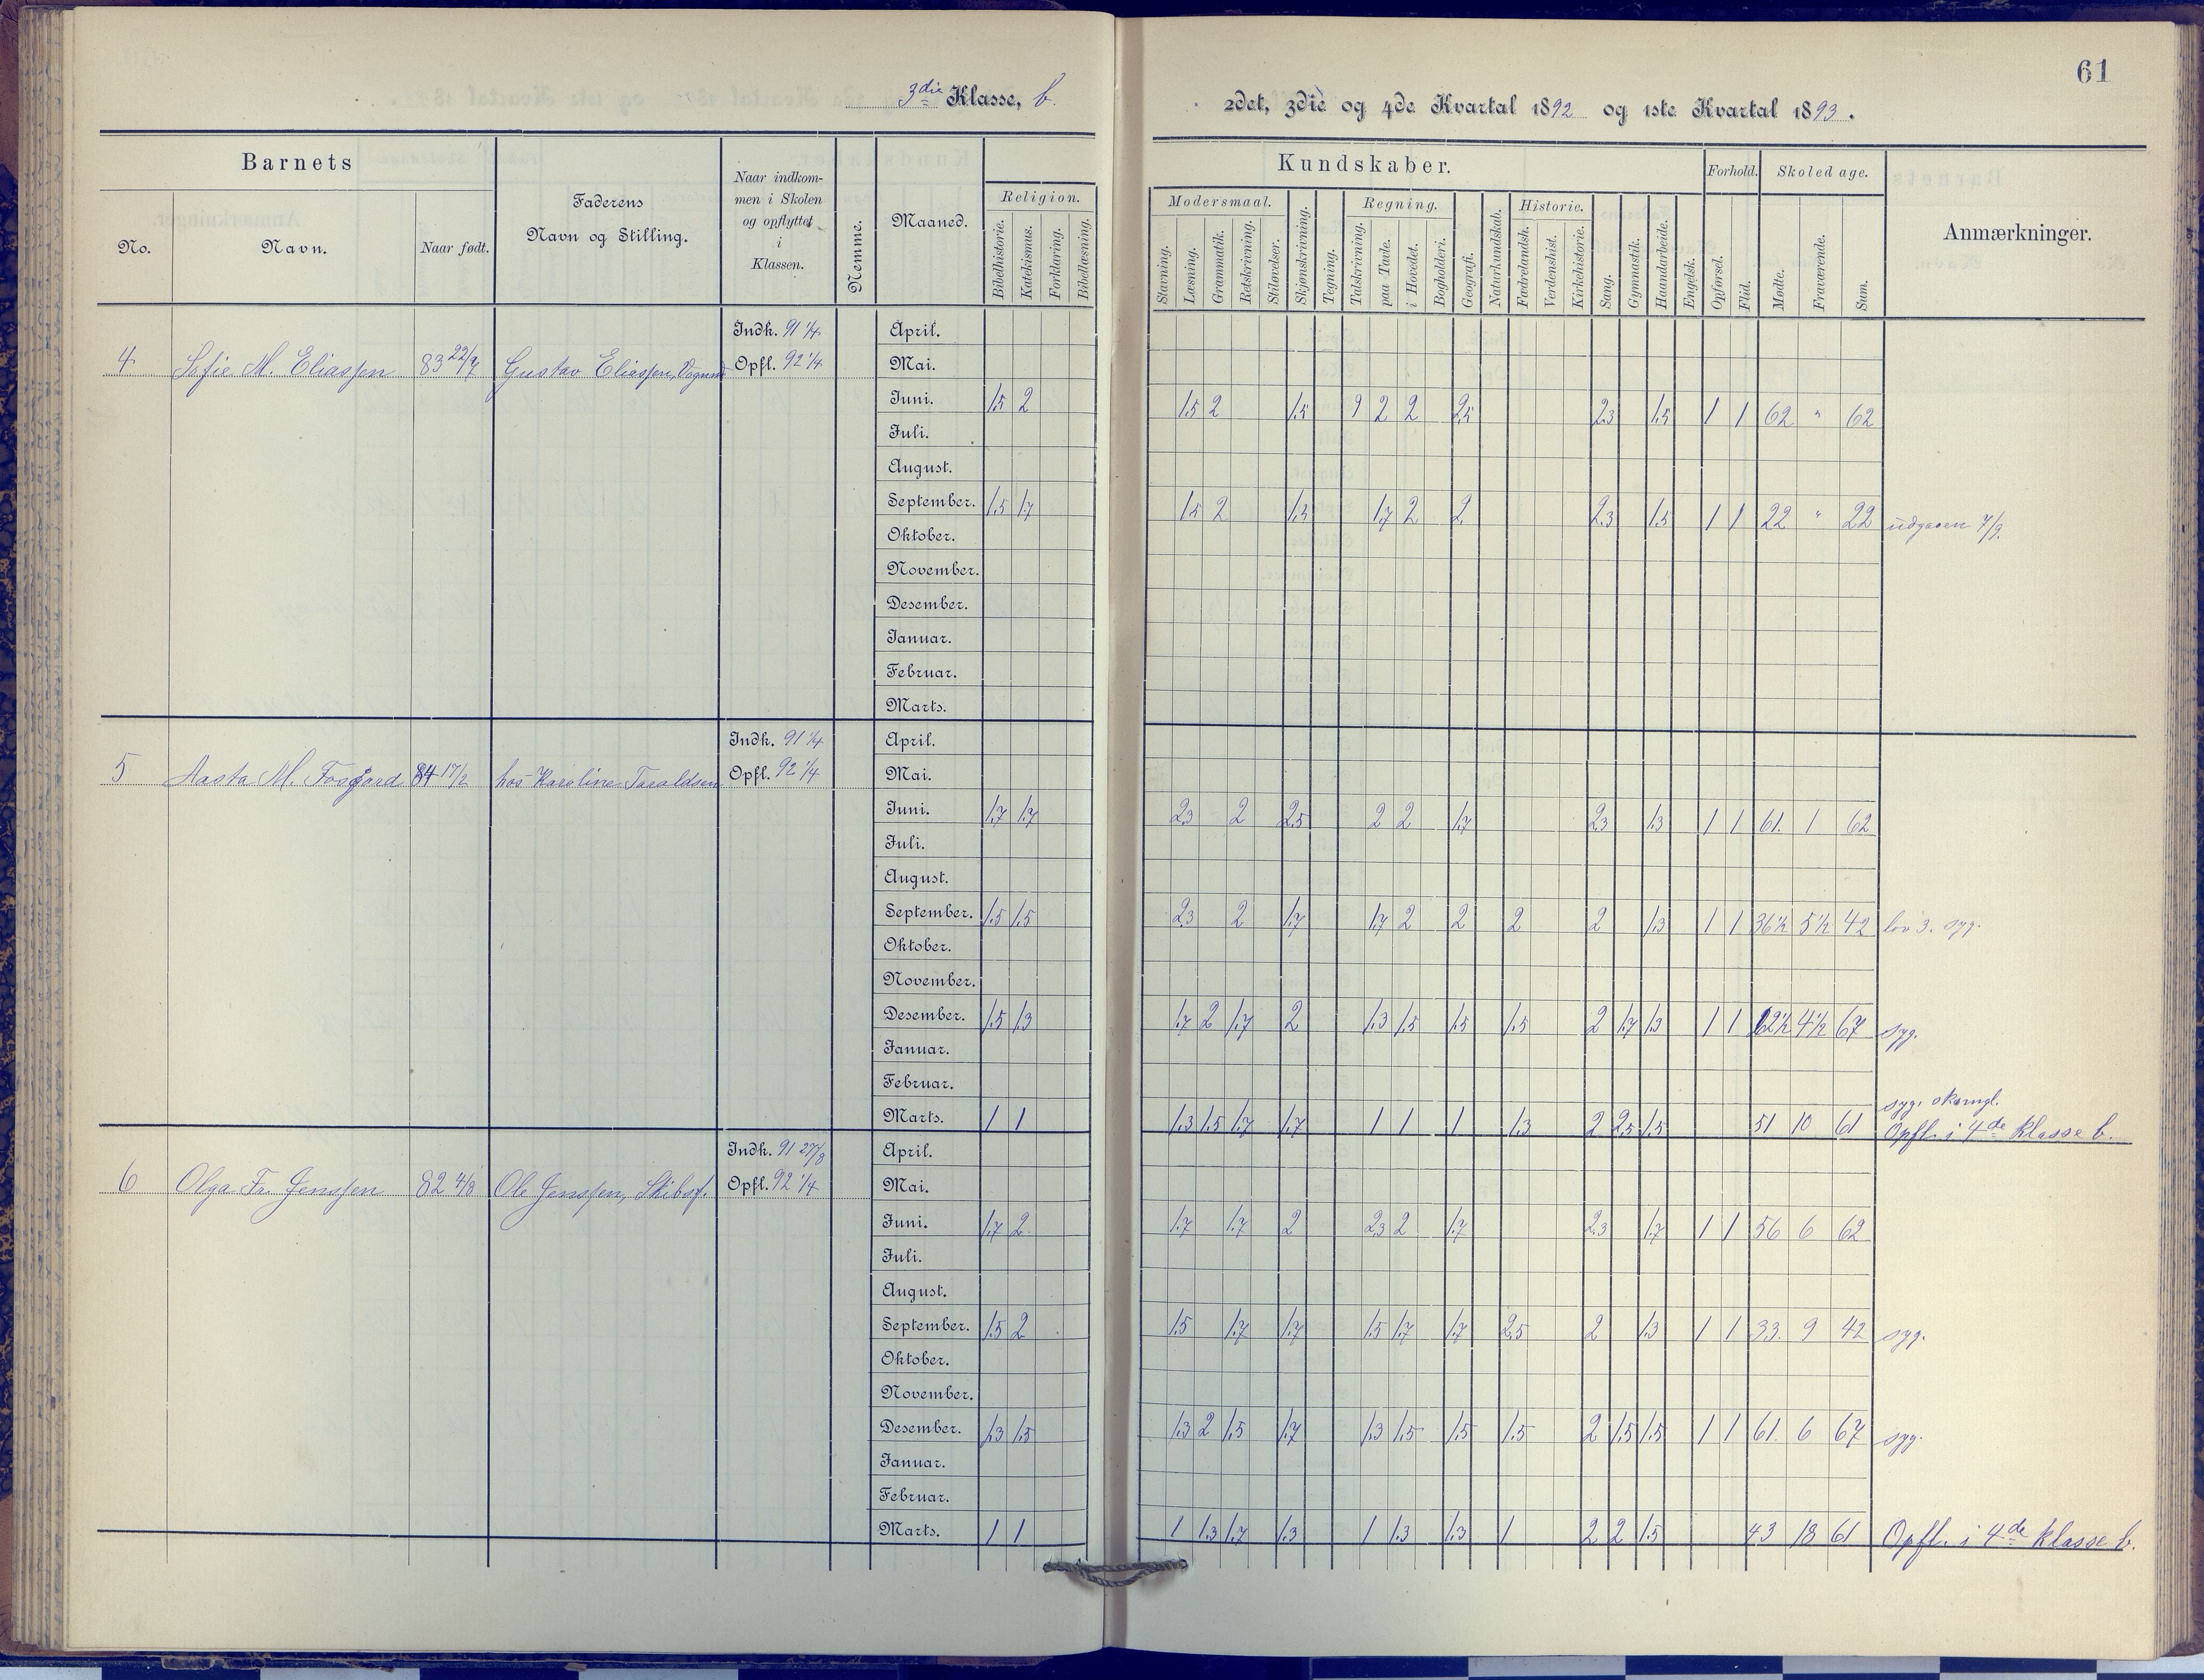 61
3die Klasse, b.
2det, 3die og 4de Kvartal 1892 og 1ste Kvartal 1893.
Barnets
No.
Navn.
Naar født.
Faderens
Navn og Stilling.
Naar indkom-
men i Skolen
og opflyttet
i
Klassen.
Nemme.
Maaned.
Kundskaber.
Religion.
Bibelhistorie.
Katekismus.
Forklaring.
Bibellæsning.
Modersmaal.
Stavning.
Læsning.
Grammatik.
Retskrivning.
Stiløvelser.
Skjønskrivning.
Tegning.
Regning.
Talskrivning.
paa Tavle.
i Hovedet.
Bogholderi.
Geografi.
Naturkundskab.
Historie.
Fædrelandsh.
Verdenshist.
Kirkehistorie.
Sang.
Gymnastik.
Haandarbeide.
Engelsk.
Forhold.
Opførsel.
Flid.
Skoledage.
Mødte.
Fraværende.
Sum.
Anmærkninger.
4 Sofie M. Eliassen 83 22/7 Gustav Eliassen,
Indk. 91 1/4 April.
Opfl. 92 1/4 Mai.
Juni. 1.5 2 1.5 2 1.5 2 2 2.5 2.3 1.5 1 1 62 " 62
Juli.
August.
September. 1.5 1.7 1.5 2 1.5 1.7 2 2 2.3 1.5 1 1 22 " 22 udgaaen 7/9.
Oktober.
November.
Desember.
Januar.
Februar.
Marts.
5 Aasta M. Fosgard 84 17/2 hos Karoline Taraldsen
Indk. 91 1/4 April.
Opfl. 92 1/4 Mai.
Juni. 1.7 1.7 2.3 2 2.5 2 2 1.7 2.3 1.3 1 1 61. 1 62
Juli.
August.
September. 1.5 1.5 2.3 2 1.7 1.7 2 2 2 2 1.3 1 1 36½ 5½ 42 lov 3. syg.
Oktober.
November.
Desember. 1.5 1.3 1.7 2 1.7 2 1.3 1.5 1.5 1.5 2 1.7 1.3 1 1 62½ 4½ 67 syg.
Januar.
Februar.
Marts. 1 1 1.3 1.5 1.7 1.7 1 1 1 1.3 2 2.5 1.5 51 10 61 syg. skomgl.
Opfl. i 4de Klasse b.
6 Olga Fr. Jenssen 82 4/8 Ole Jenssen, Skibsf.
Indk. 91 27/8 April.
Opfl. 92 1/4 Mai.
Juni. 1.7 2 1.7 1.7 2 2.3 2 1.7 2.3 1.7 1 1 56 6 62
Juli.
August.
September. 1.5 2 1.5 1.7 1.7 1.5 1.7 1.7 2.5 2 1.3 1 1 33. 9 42 syg.
Oktober.
November.
Desember. 1.3 1.5 1.3 2 1.5 1.7 1.3 1.5 1.5 1.5 2 1.5 1.5 1 1 61. 6 67 syg.
Januar.
Februar.
Marts. 1 1 1 1.3 1.7 1.3 1 1.3 1.3 1 2 2 1.5 43 18 61 Opfl. i 4de Klasse b.